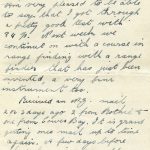 am very pleased to be able
to say that I got through
a fifty good test with
94%. Next week we
continue on with a course in
range finding with a range
finder that has just been
invented, a very fine
instrument too.
Received an N.Z. mail
2 or 3 days ago 2 from Mother &
2 from
getting once mail up to time
again. A few days before